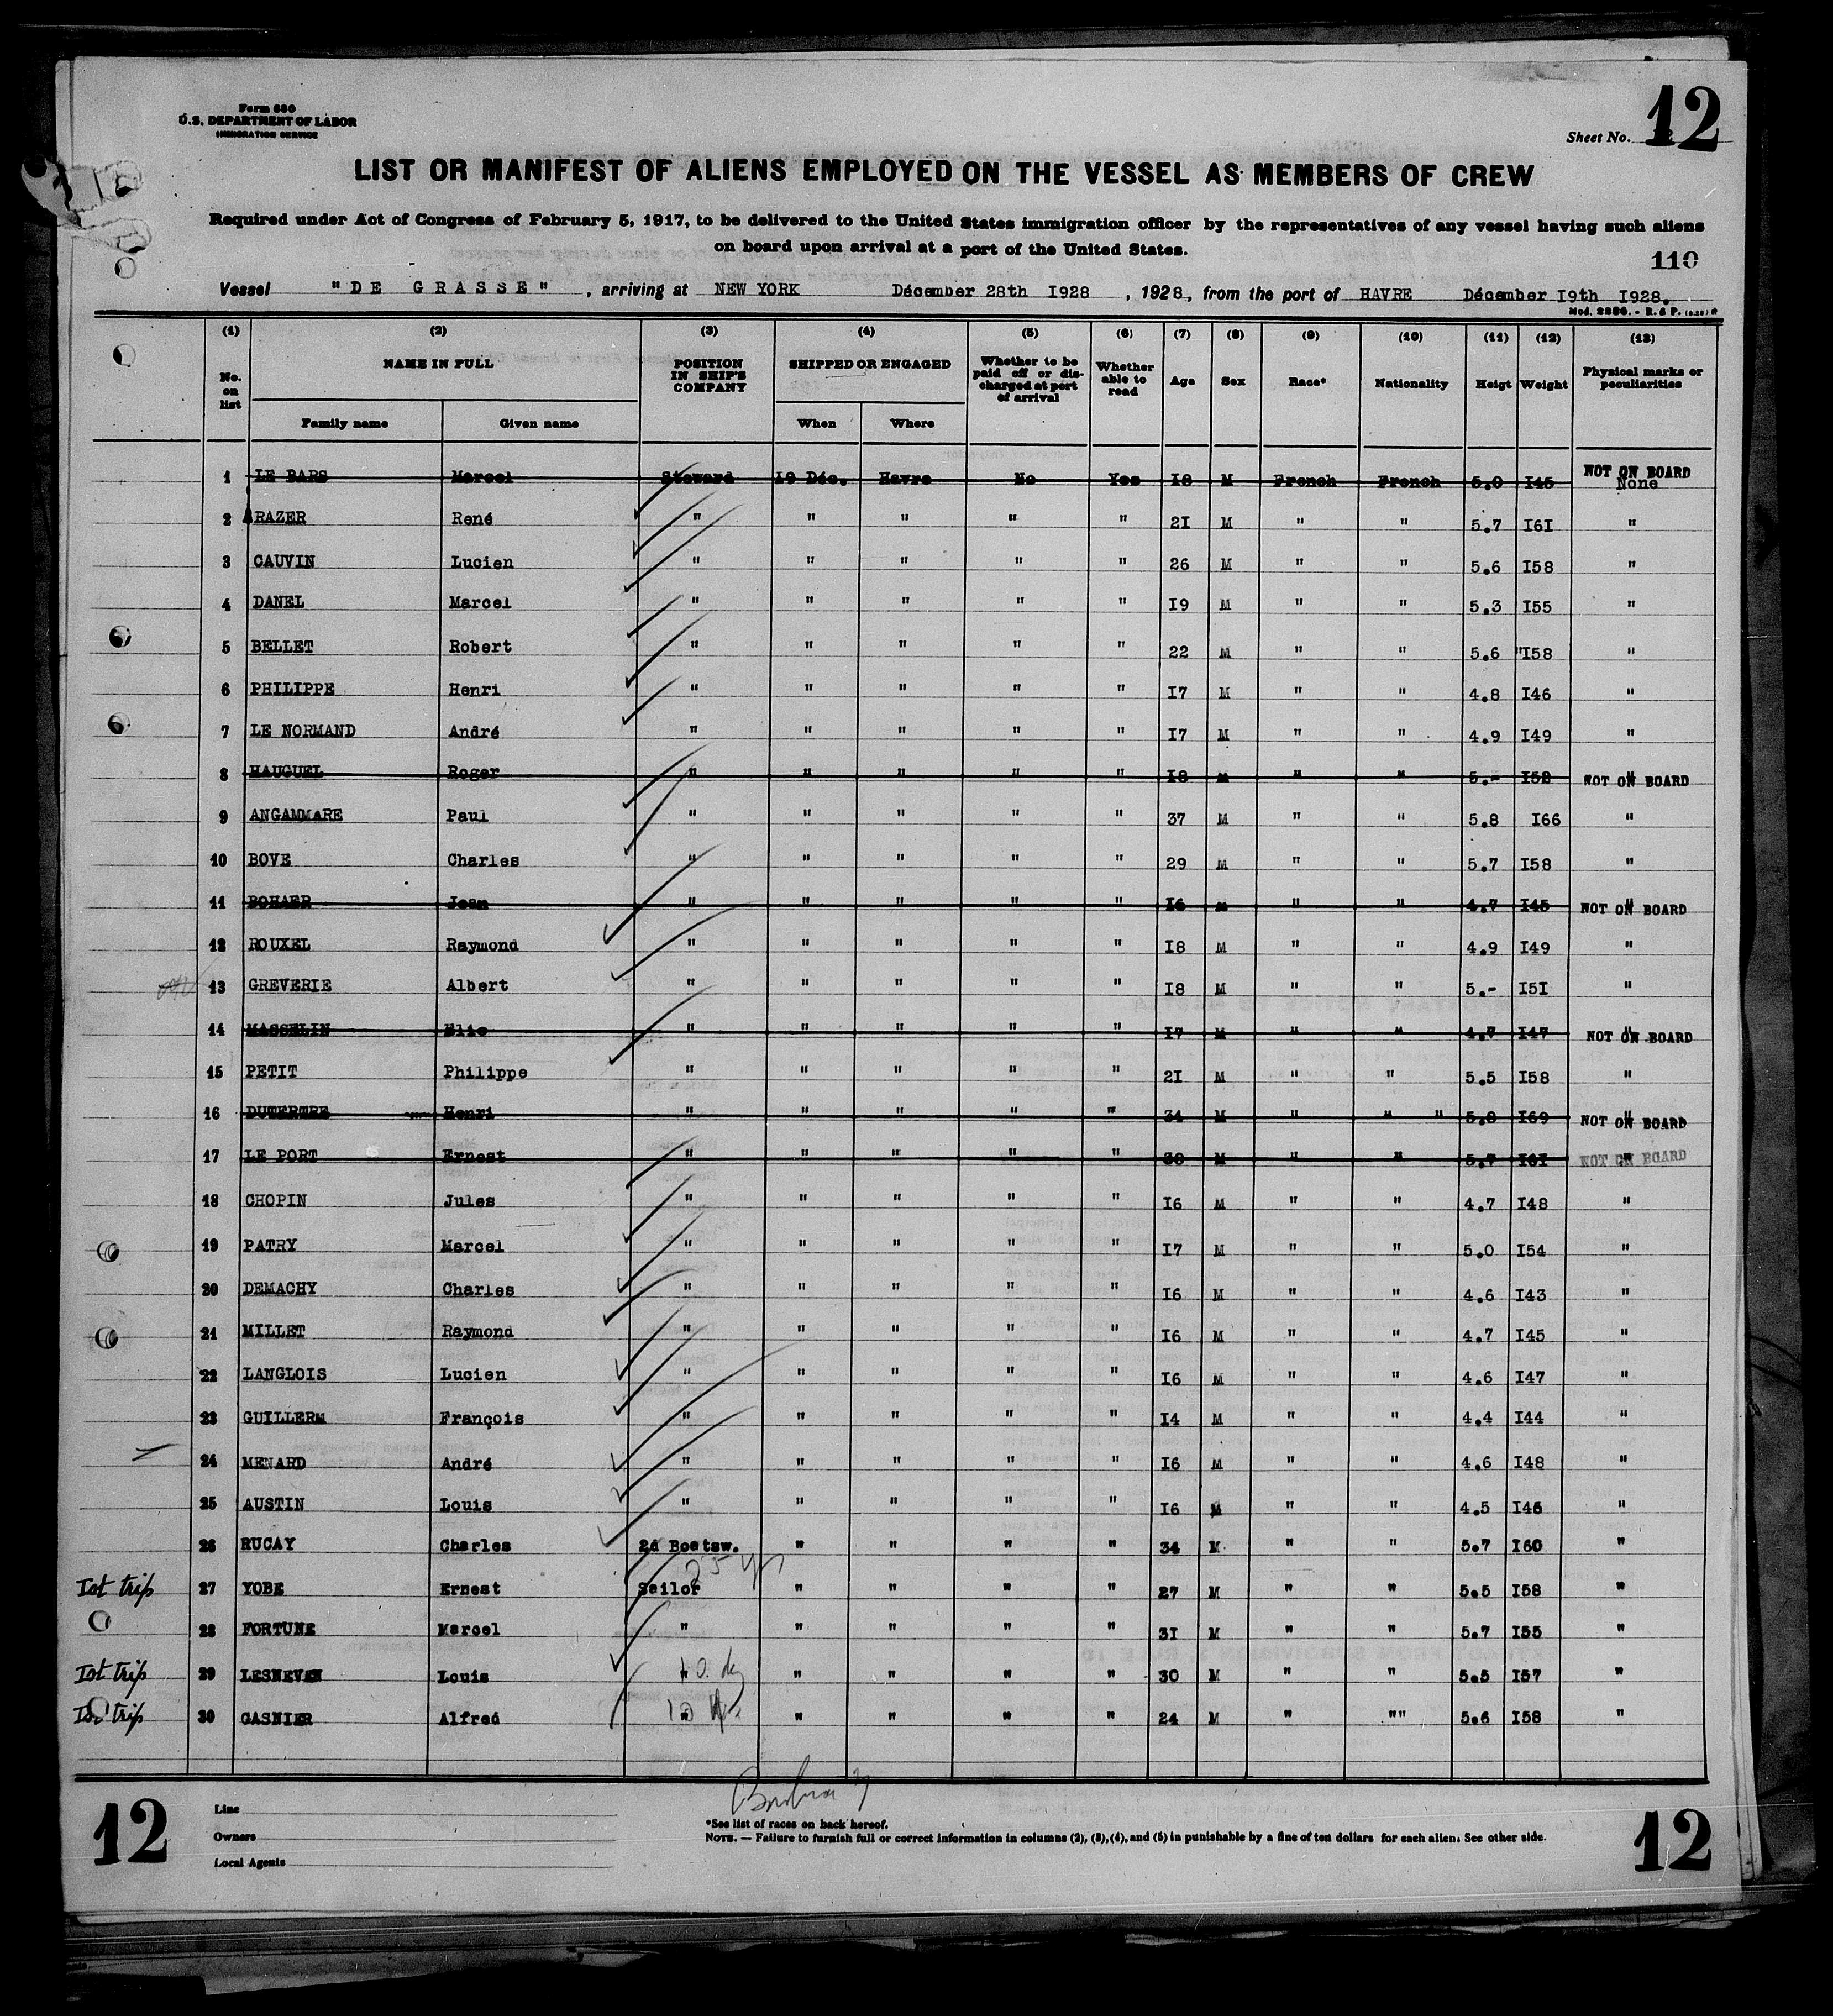 Form 680
U.S. DEPARTMENT OF LABOR
IMMIGRATION SERVICE
12
Sheet No.
LIST OR MANIFEST OF ALIENS EMPLOYED ON THE VESSEL AS MEMBERS OF CREW
Required under Act of Congress of February 5, 1917, to be delivered to the United States immigration officer by the representatives of any vessel having such aliens
on board upon arrival at a port of the United States.
110
Vessel "DE GRASSE", arriving at NEW YORK Décember 28th I928, 1928, from the port of HAVRE Décember I9th I928.
Mod. 2286. - R. & P.
(1) (2) (3) (4) (5) (6) (7) (8) (9) (10) (11) (12) (13)
No. on list NAME IN FULL POSITION IN SHIP'S COMPANY SHIPPED OR ENGAGED Whether to be paid off or discharged at port of arrival Whether able to read Age Sex Race* Nationality Heigt Weight Physical marks or peculiarities
Family name Given name When Where
1 LE BARS Marcel Steward I9 Déc. Havre No Yes I8 M French French 5.0 I45 NOT ON BOARD None
2 ARAZER René " " " " " 2I M " " 5.7 I6I "
3 CAUVIN Lucien " " " " " 26 M " " 5.6 I58 "
4 DANEL Marcel " " " " " I9 M " " 5.3 I55 "
5 BELLET Robert " " " " " 22 M " " 5.6 "I58 "
6 PHILIPPE Henri " " " " " I7 M " " 4.8 I46 "
7 LE NORMAND André " " " " " I7 M " " 4.9 I49 "
8 HAUGUEL Roger " " " " " I8 M " " 5.- I52 NOT ON BOARD "
9 ANGAMMARE Paul " " " " " 37 M " " 5.8 I66 "
10 BOVE Charles " " " " " 29 M " " 5.7 I58 "
11 BOHAER Jean " " " " " I6 M " " 4.7 I45 NOT ON BOARD "
12 ROUXEL Raymond " " " " " I8 M " " 4.9 I49 "
13 GREVERIE Albert " " " " " I8 M " " 5.- I5I "
14 MASSELIN Elie " " " " " I7 M " " 4.7 I47 NOT ON BOARD "
15 PETIT Philippe " " " " " 2I M " " 5.5 I58 "
16 DUTERTRE Henri " " " " " 34 M " " " 5.8 I69 NOT ON BOARD "
17 LE PORT Ernest " " " " " 38 M " " 5.7 I6I NOT ON BOARD "
18 CHOPIN Jules " " " " " I6 M " " 4.7 I48 "
19 PATRY Marcel " " " " " I7 M " " 5.0 I54 "
20 DEMACHY Charles " " " " " I6 M " " 4.6 I43 "
21 MILLET Raymond " " " " " I6 M " " 4.7 I45 "
22 LANGLOIS Lucien " " " " " I6 M " " 4.6 I47 "
23 GUILLERM François " " " " " I4 M " " 4.4 I44 "
24 MENARD André " " " " " I6 M " " 4.6 I48 "
25 AUSTIN Louis " " " " " I6 M " " 4.5 I46 "
26 RUCAY Charles 2d Boatsw. " " " " 34 M " " 5.7 I60 "
Ist trip 27 YOBE Ernest Sailor " " " " 27 M " " 5.5 I58 "
28 FORTUNE Marcel " " " " " 3I M " " 5.7 I55 "
Ist trip 29 LESNEVEN Louis " " " " " 30 M " " 5.5 I57 "
Ist trip 30 GASNIER Alfred " " " " " 24 M " "" 5.6 I58 "
12
Line
Owners
Local Agents
*See list of races on back hereof.
NOTE. — Failure to furnish full or correct information in columns (2), (3), (4), and (5) in punishable by a fine of ten dollars for each alien. See other side.
12